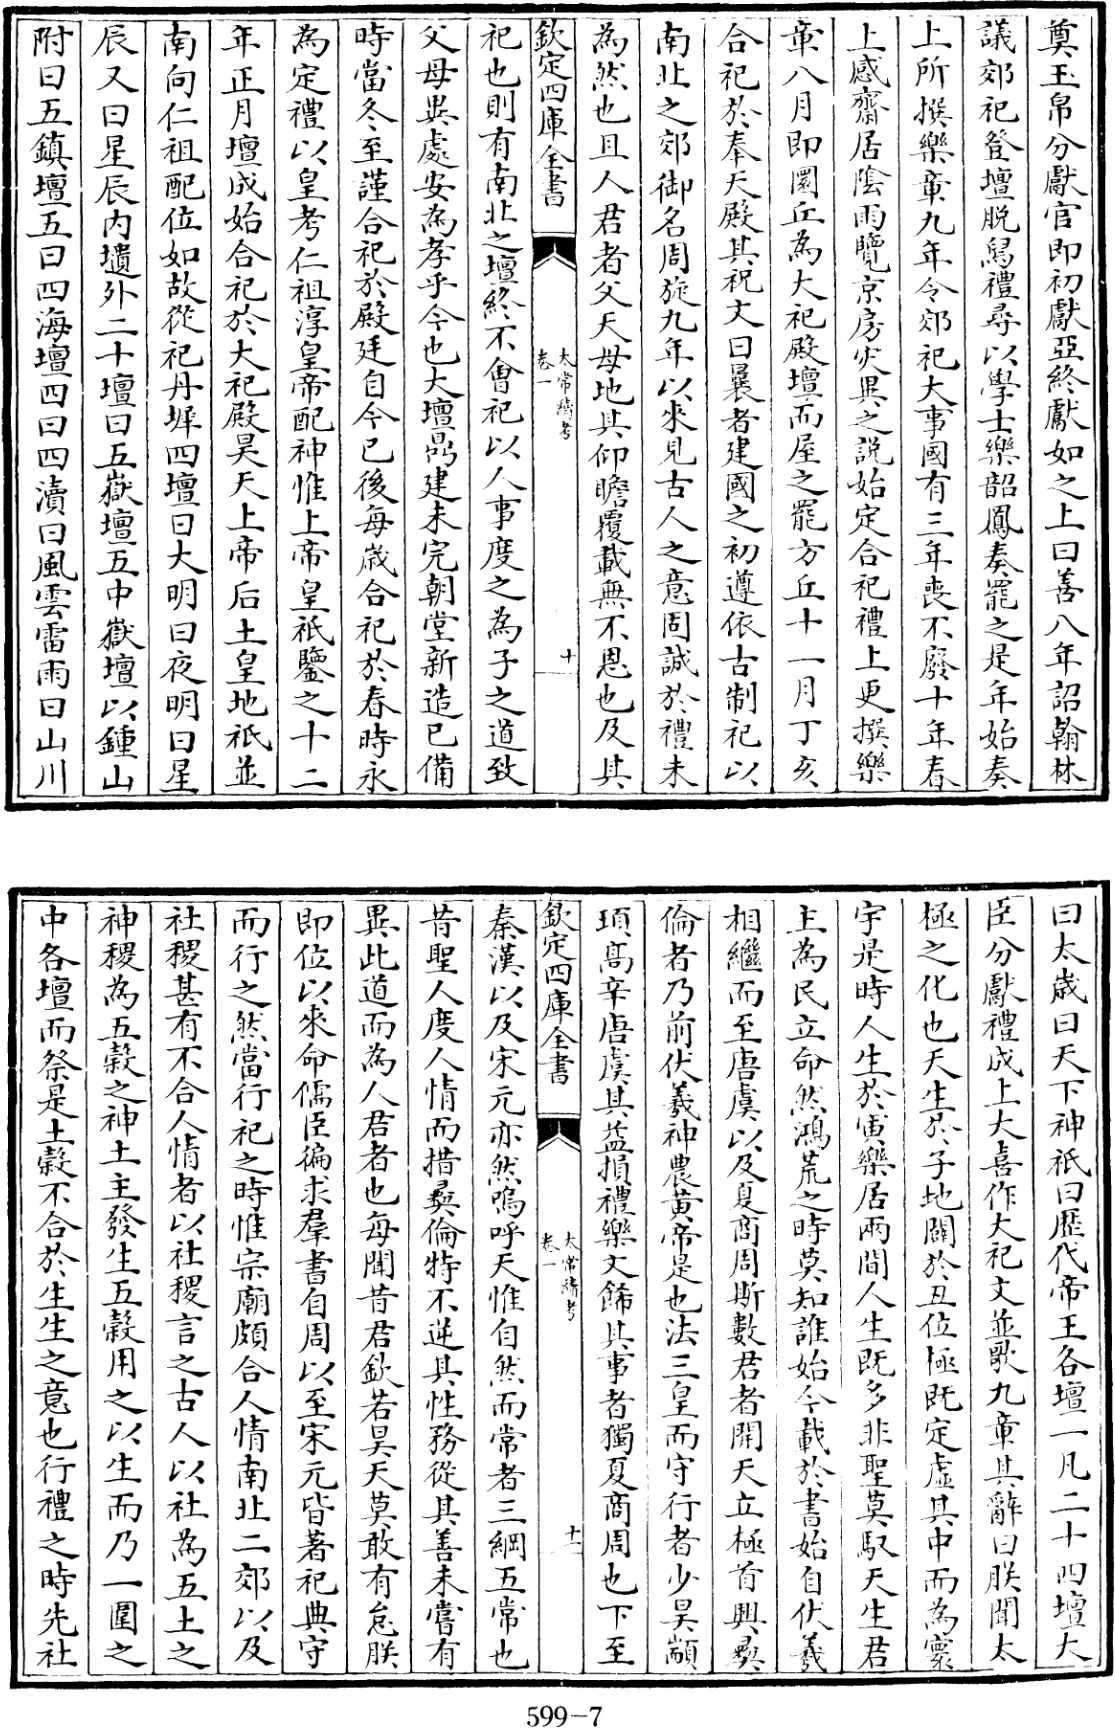 奠玉帛分獻官即初獻亞終獻如之上曰善八年詔翰林
議郊祀登壇脱舄禮尋以學士樂韶鳳奏罷之是年始奏
上所撰樂章九年令郊祀大事國有三年喪不廢十年春
上感齋居陰雨覽京房灾異之説始定合祀禮上更撰樂
章八月即圜丘為大祀殿壇而屋之罷方丘十一月丁亥
合祀於奉天殿其祝文曰曩者建國之初遵依古制祀以
南北之郊御名周旋九年以來見古人之意固誠於禮未
為然也且人君者父天母地其仰瞻覆載無不恩也及其
欽定四庫全書
太常續考
卷一
十
祀也則有南北之壇終不會祀以人事度之為子之道致
父母異處安為孝乎今也大壇昂建未完朝堂新造已備
時當冬至謹合祀於殿廷自今已後每歳合祀於春時永
為定禮以皇考仁祖淳皇帝配神惟上帝皇祇鑒之十二
年正月壇成始合祀於大祀殿昊天上帝后土皇地祇並
南向仁祖配位如故從祀丹墀四壇曰大明曰夜明曰星
辰又曰星辰内壝外二十壇曰五嶽壇五中嶽壇以鍾山
附曰五鎮壇五曰四海壇四曰四瀆曰風雲雷雨曰山川
曰太歳曰天下神祇曰歴代帝王各壇一凡二十四壇大
臣分獻禮成上大喜作大祀文並歌九章其辭曰朕聞太
極之化也天生於子地闢於丑位極既定虚其中而為寰
宇是時人生於寅樂居兩間人生既多非聖莫馭天生君
主為民立命然鴻荒之時莫知誰始今載於書始自伏羲
相繼而至唐虞以及夏商周斯數君者開天立極首興彛
倫者乃前伏羲神農黄帝是也法三皇而守行者少昊顓
頊高辛唐虞其益損禮樂文飾其事者獨夏商周也下至
欽定四庫全書
太常續考
卷一
十一
秦漢以及宋元亦然嗚呼天惟自然而常者三綱五常也
昔聖人度人情而措彛倫特不逆其性務從其善未嘗有
異此道而為人君者也每聞昔君欽若昊天莫敢有怠朕
即位以來命儒臣徧求羣書自周以至宋元皆著祀典守
而行之然當行祀之時惟宗廟頗合人情南北二郊以及
社稷甚有不合人情者以社稷言之古人以社為五土之
神稷為五穀之神土主發生五穀用之以生而乃一圍之
中各壇而祭是土穀不合於生生之意也行禮之時先社
599-7